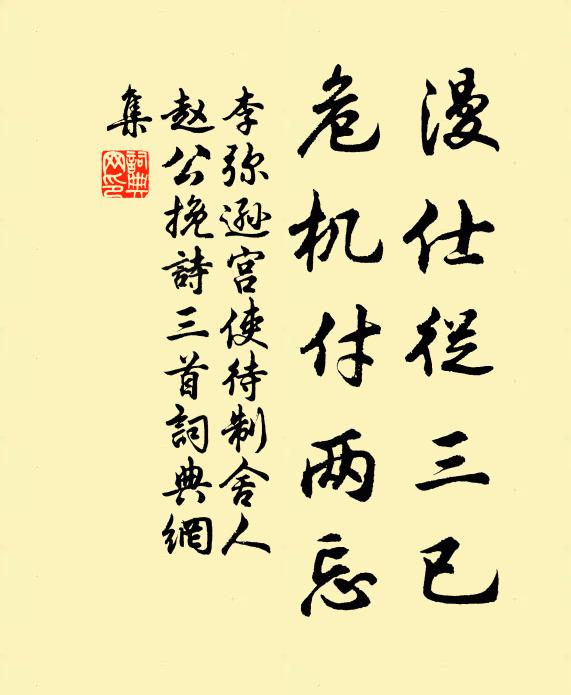 漫仕從三已
危机付两忘
李弥逊宫使待制舍人
赵公挽詩三首詞典網
集
詞典网印